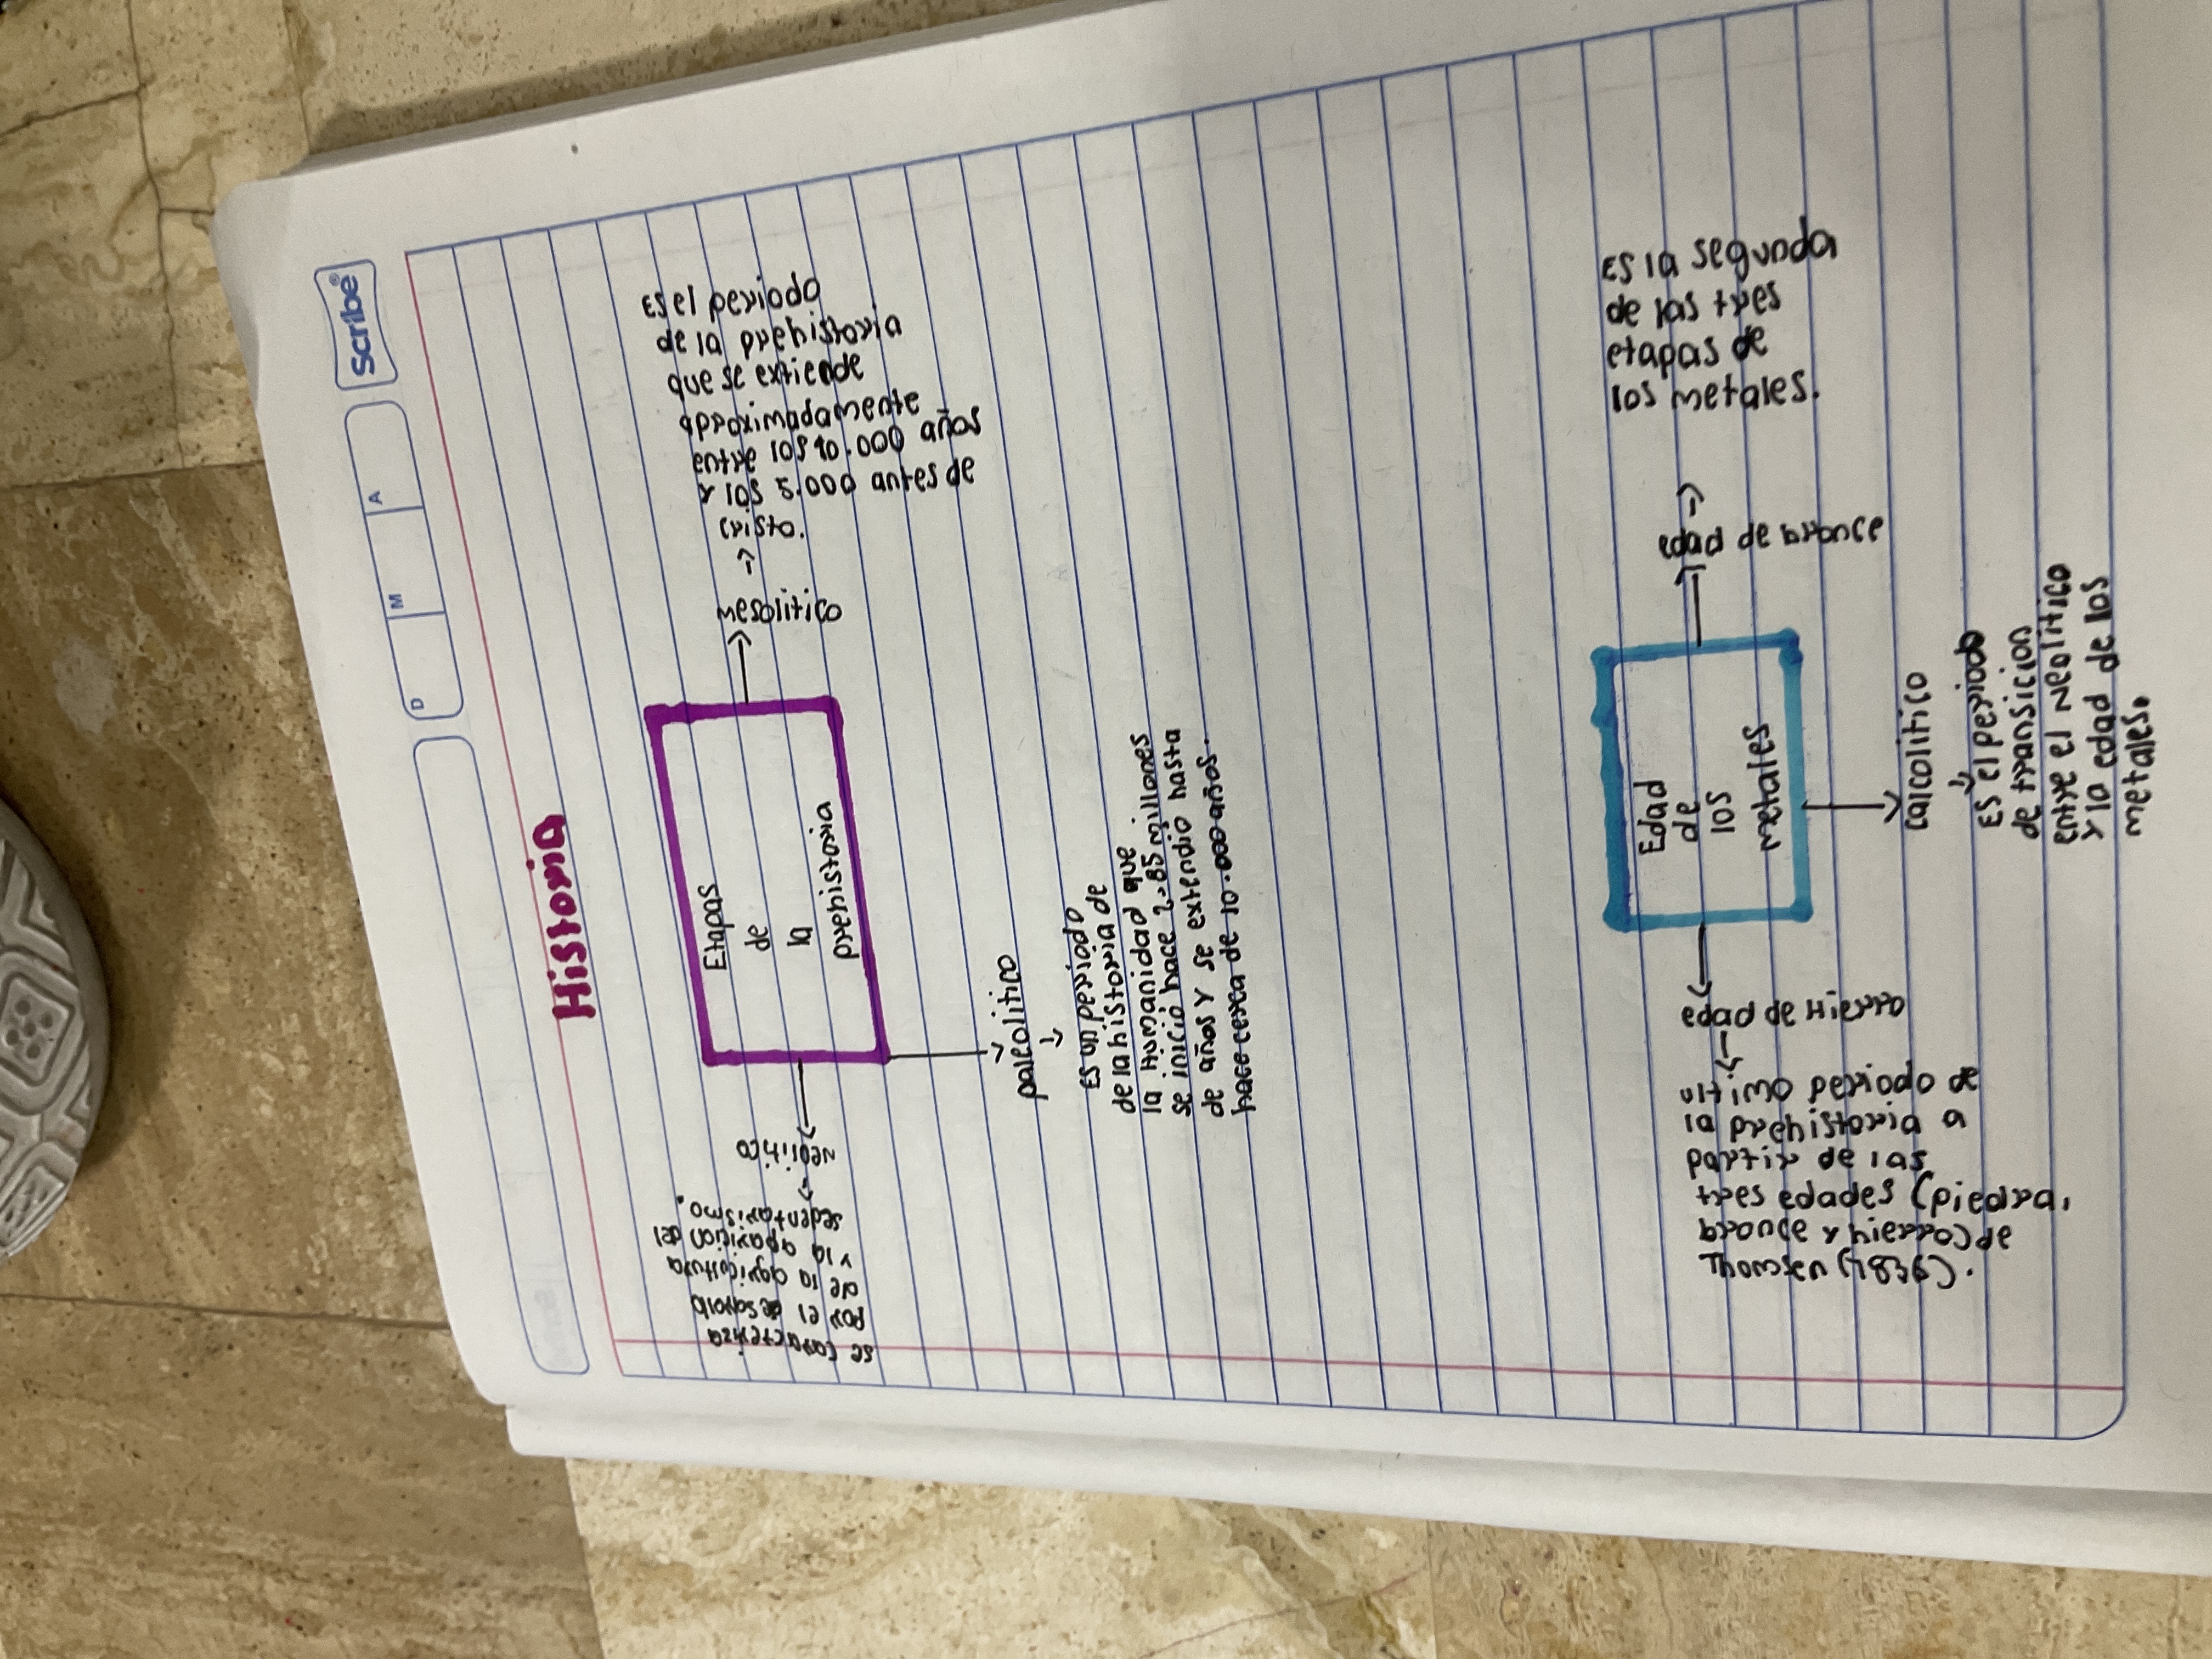 Scribe®
D M A
Historia
Etapas
de
la
prehistoria
mesolitico
Es el periodo
de la prehistoria
que se extiende
aproximadamente
entre los 10.000 años
y los 5.000 antes de
cristo.
neolitico
se caracteriza
por el desarollo
de la agricultura
y la aparicion del
sedentarismo.
paleolitico
Es un periodo
de la historia de
la Humanidad que
se inició hace 2.85 millones
de años y se extendio hasta
hace cerca de 10.000 años.
Edad
de
los
metales
edad de bronce
Es la segunda
de las tres
etapas de
los metales.
edad de Hierro
ultimo periodo de
la prehistoria a
partir de las
tres edades (piedra,
bronce y hierro) de
Thomsen
calcolitico
Es el periodo
de transicion
entre el Neolitico
y la edad de los
metales.